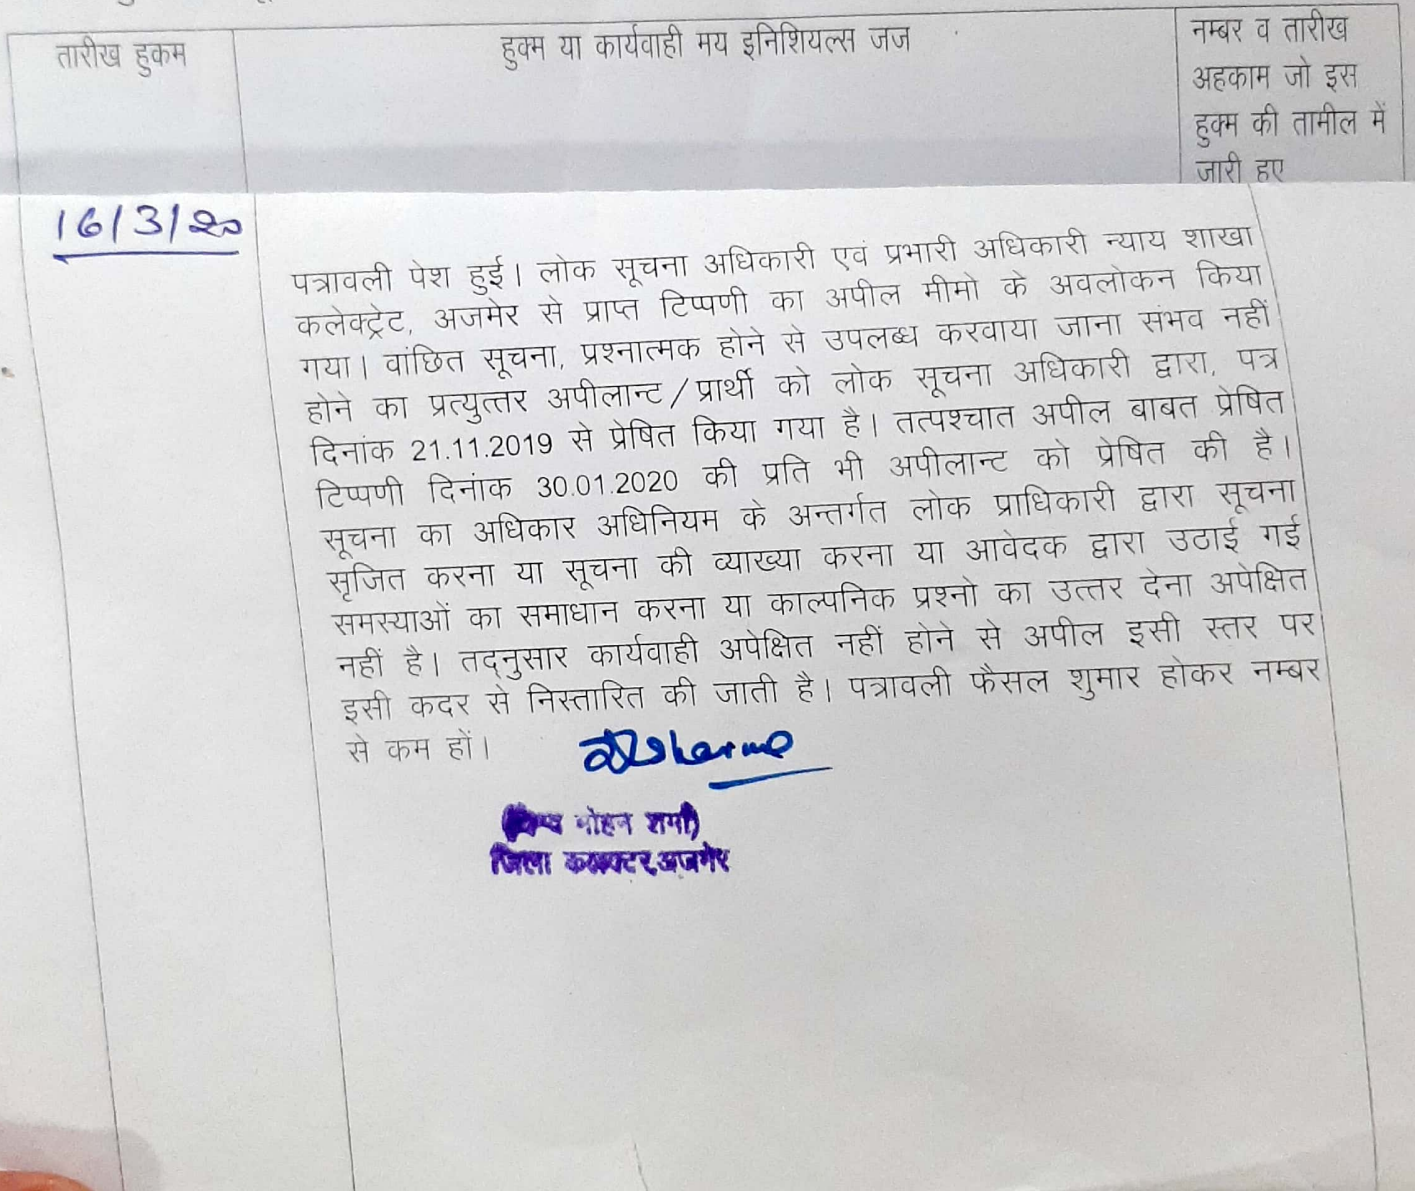 तारीख हुकम
हुक्म या कार्यवाही मय इनिशियल्स जज
नम्बर व तारीख
अहकाम जो इस
हुक्म की तामील में
जारी हुए
16/3/20
पत्रावली पेश हुई। लोक सूचना अधिकारी एवं प्रभारी अधिकारी न्याय शाखा
कलेक्ट्रेट, अजमेर से प्राप्त टिप्पणी का अपील मीमो के अवलोकन किया
गया। वांछित सूचना, प्रश्नात्मक होने से उपलब्ध करवाया जाना संभव नहीं
होने का प्रत्युत्तर अपीलान्ट/प्रार्थी को लोक सूचना अधिकारी द्वारा, पत्र
दिनांक 21.11.2019 से प्रेषित किया गया है। तत्पश्चात अपील बाबत प्रेषित
टिप्पणी दिनांक 30.01.2020 की प्रति भी अपीलान्ट को प्रेषित की है।
सूचना का अधिकार अधिनियम के अन्तर्गत लोक प्राधिकारी द्वारा सूचना
सृजित करना या सूचना की व्याख्या करना या आवेदक द्वारा उठाई गई
समस्याओं का समाधान करना या काल्पनिक प्रश्नो का उत्तर देना अपेक्षित
नहीं है। तद्नुसार कार्यवाही अपेक्षित नहीं होने से अपील इसी स्तर पर
इसी कदर से निस्तारित की जाती है। पत्रावली फैसल शुमार होकर नम्बर
से कम हों।
मोहन शर्मा)
जिला कलक्टर, अजमेर